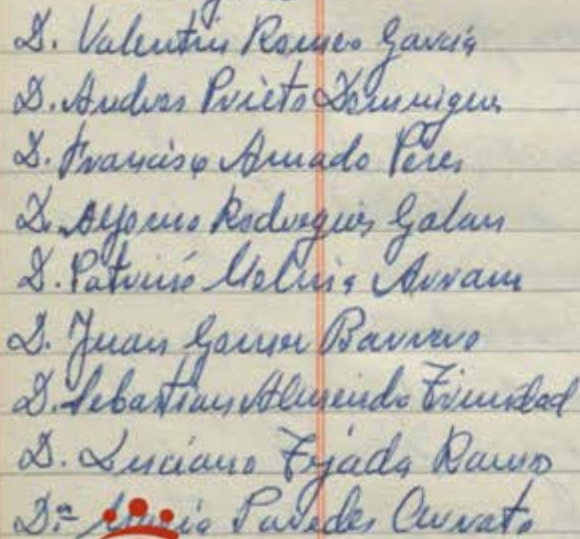 D. Valentin Romero García
D. Andres Prieto Dominguez
D. Francisco Amado Peres
D. Alfonso Rodrigues Galan
D. Patricio Molina Arram
D. Juan Gomez Barrero
D. Sebastian Almendo Trinidad
D. Luciano Tejada Ramos
Dª Paredes